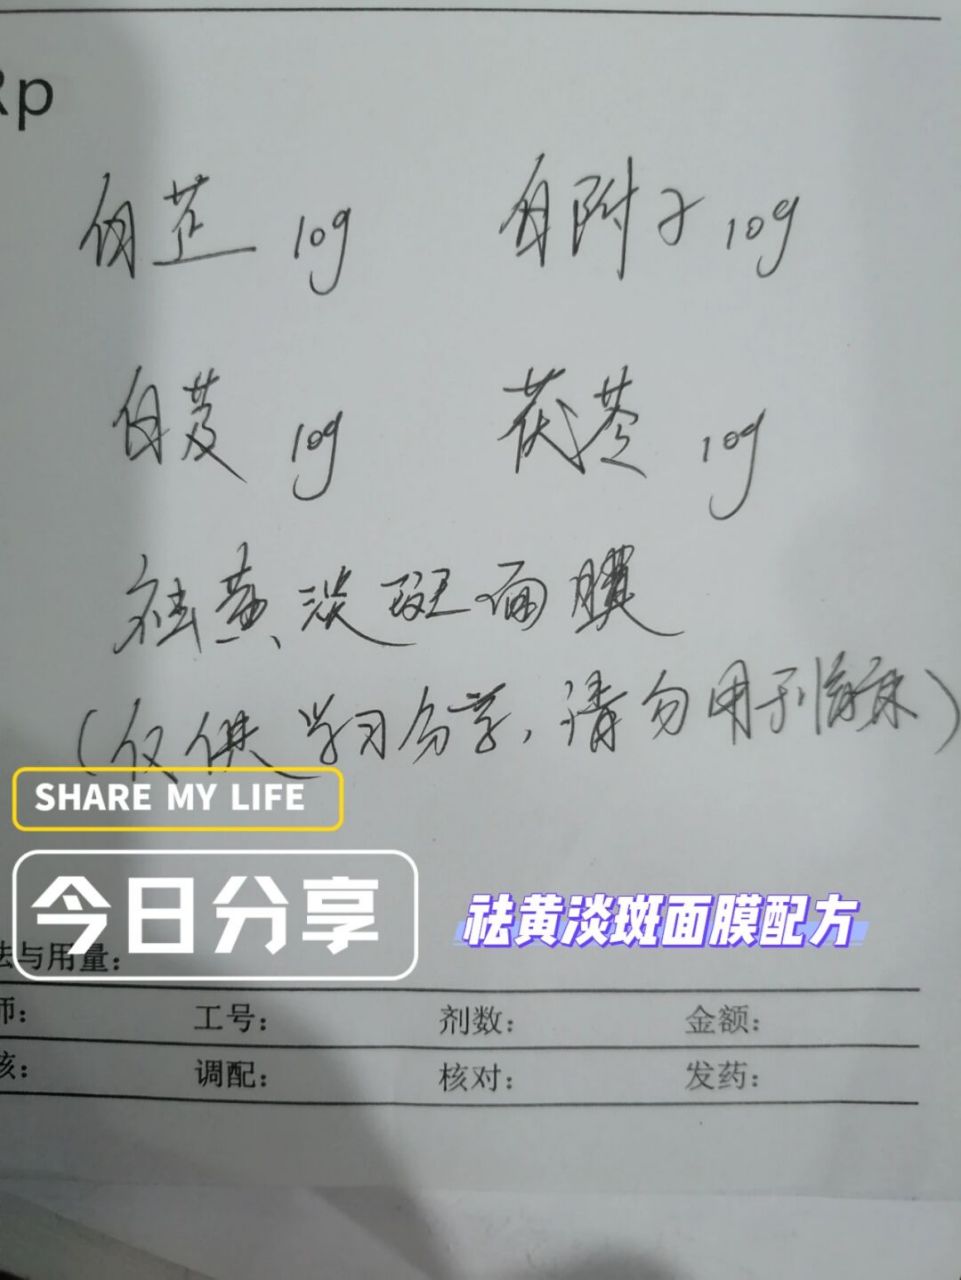 Rp
白芷 10g 白附子 10g
白芨 10g 茯苓 10g
祛黄淡斑面膜
(仅供学习分享,请勿用于临床)
SHARE MY LIFE
今日分享
祛黄淡斑面膜配方
法与用量:
师: 工号: 剂数: 金额:
核: 调配: 核对: 发药: